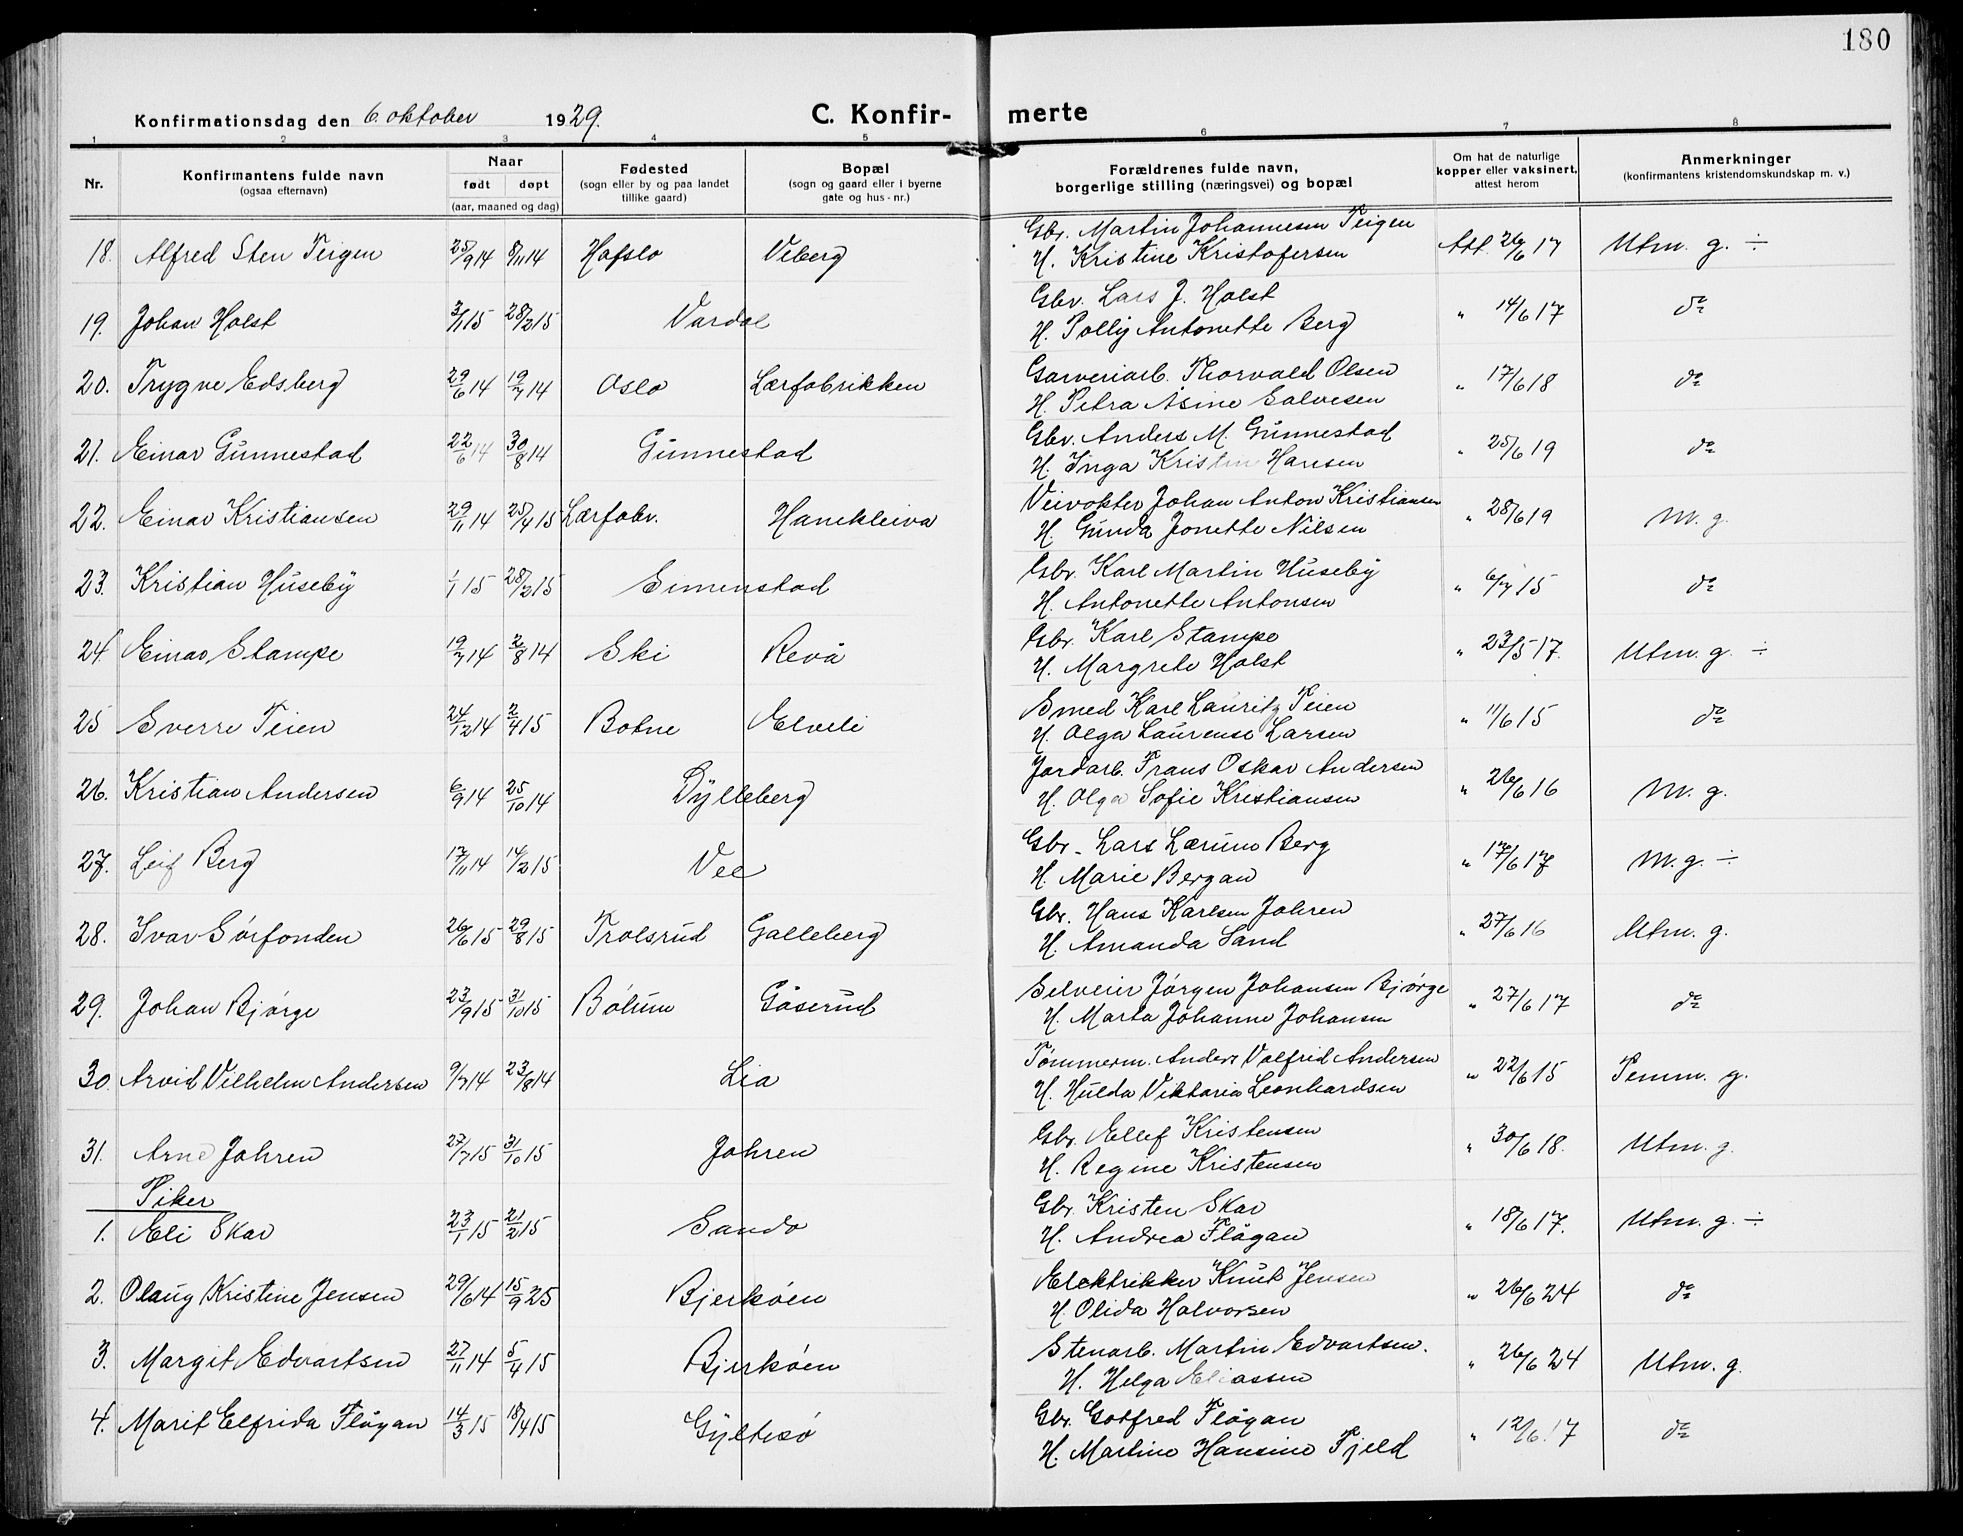 180
Konfirmationsdag den 6. oktober 1929.
C. Konfirmerte
1 2 3 4 5 6 7 8
Nr.
Konfirmantens fulde navn
(ogsaa efternavn)
Naar
født døpt
(aar, maaned og dag)
Fødested
(sogn eller by og paa landet
tillike gaard)
Bopæl
(sogn og gaard eller i byerne
gate og hus-nr.)
Forældrenes fulde navn,
borgerlige stilling (næringsvei) og bopæl
Om hat de naturlige
kopper eller vaksinert,
attest herom
Anmerkninger
(konfirmantens kristendomskundskap m. v.)
18. Alfred Sten Teigen 25/9 14 8/11 14 Hafslo Viberg Gbr. Martin Johannesen Teigen Att. 26/6 17 Utm. g. ÷
H. Kristine Kristofersen
19. Johan Holst 3/1 15 28/2 15 Vardal Gbr. Lars J. Holst " 14/6 17 do
H. Polly Antonette Berg
20. Trygve Edsberg 29/6 14 19/7 14 Oslo Lærfabrikken Garveriarb. Thorvald Olsen " 17/6 18 do
H. Petra Asine Salvesen
21. Einar Gunnestad 22/6 14 30/8 14 Gunnestad Gbr. Anders M. Gunnestad " 25/6 19 do
H. Inga Kristin Hansen
22. Einar Kristiansen 29/11 14 25/4 15 Lærfabr. Hanekleiva Veivokter Johan Anton Kristiansen " 28/6 19 M. g.
H. Gunda Jonette Nilsen
23. Kristian Huseby 1/1 15 28/2 15 Simenstad Gbr. Karl Martin Huseby " 6/7 15 do
H. Antonette Antonsen
24. Einar Stampe 19/7 14 2/8 14 Ski Revå Gbr. Karl Stampe " 23/5 17. Utm. g. ÷
H. Margrete Holst
25 Sverre Teien 24/12 14 2/4 15 Botne Elveli Smed Karl Lauritz Teien " 11/6 15 do
H. Olga Laurense Larsen
26. Kristian Andersen 6/9 14 25/10 14 Dylleberg Jordarb. Frans Oskar Andersen " 26/6 16 M. g.
H. Olga Sofie Kristiansen
27. Leif Berg 17/11 14 14/2 15 Vee Gbr. Lars Lærum Berg " 17/6 17 M. g. ÷
H. Marie Bergan
28. Ivar Sørfonden 26/6 15 29/8 15 Trolsrud Galleberg Gbr. Hans Karlsen Jahren " 27/6 16 Utm. g.
H. Amanda Sand
29. Johan Bjørge 23/9 15 31/10 15 Bølum Gåserud Selveier Jørgen Johansen Bjørge " 27/6 17 do
H. Marta Johanne Johansen
30. Arvid Vilhelm Andersen 9/7 14 23/8 14 Lia Tømmerm. Anders Valfrid Andersen " 22/6 15 Temm. g.
H. Hulda Viktoria Leonhardsen
31. Arne Jahren 27/7 15 31/10 15 Jahren Gbr. Ellef Kristensen " 30/6 18. Utm. g.
H. Regine Kristensen
Piker
1. Eli Skar 23/1 15 21/2 15 Sando Gbr. Kristen Skar " 18/6 17. Utm. g. ÷
H. Andrea Flågan
2. Olaug Kristine Jensen 29/6 14 15/9 25 Bjerkøen Elektrikker Knut Jensen " 26/6 24 do
H. Olida Halvorsen
3. Margit Edvartsen 27/11 14 5/4 15 Bjerkøen Stenarb. Martin Edvartsen. " 26/6 24 Utm. g.
H. Helga Eliassen
4. Marit Elfrida Flågan 14/3 15 18/4 15 Gyltesø Gbr. Gotfred Flågan " 12/6 17 do
H. Martine Hansine Fjeld